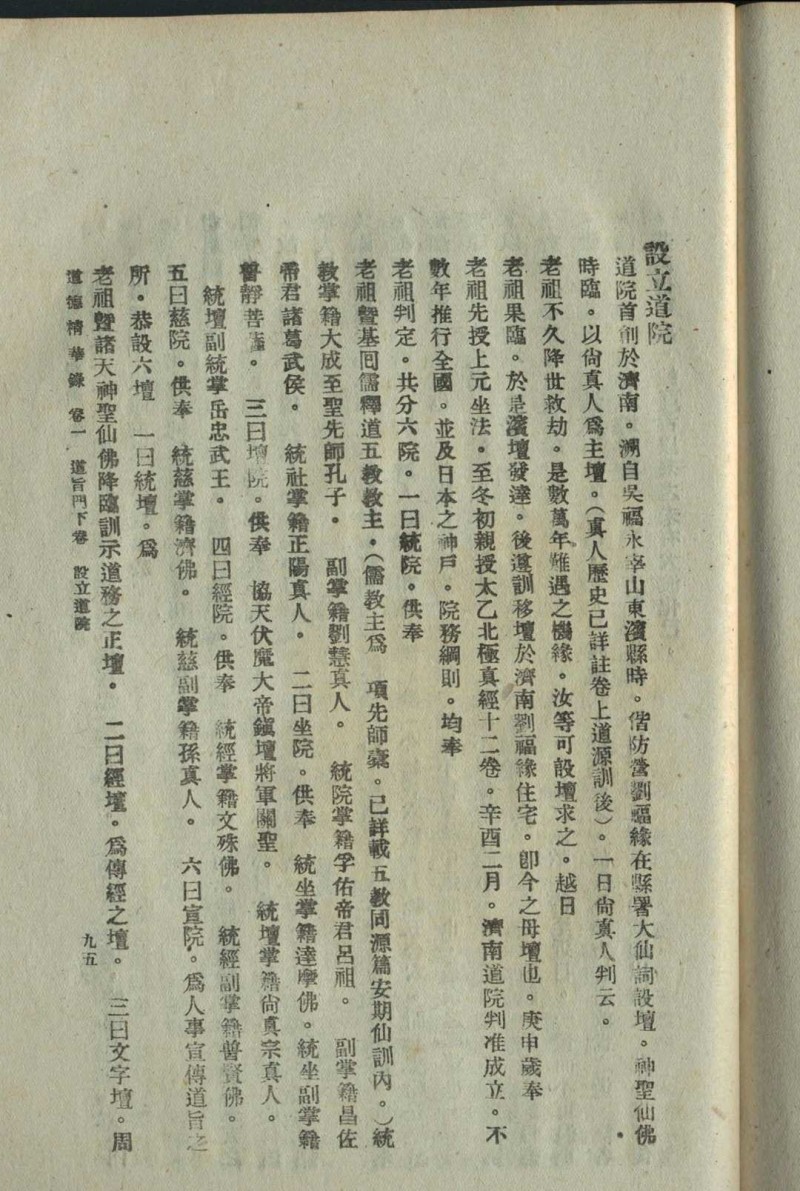 設立道院
道院首創於濟南。溯自吳福永宰山東濱縣時。偕防營劉福緣在縣署大仙祠設壇。神聖仙佛
時臨。以尚真人爲主壇。(真人歷史已詳註卷上道源訓後)。一日尚真人判云。
老祖不久降世救劫。是數萬年難遇之機緣。汝等可設壇求之。越日
老祖果臨。於是濱壇發達。後遵訓移壇於濟南劉福緣住宅。卽今之母壇也。庚申歲奉
老祖先授上元坐法。至冬初親授太乙北極真經十二卷。辛酉二月。濟南道院判准成立。不
數年推行全國。並及日本之神戶。院務綱則。均奉
老祖判定。共分六院。一曰統院。供奉
老祖暨基回儒釋道五教教主。(儒教主爲 項先師橐。已詳載五教同源篇安期仙訓內。)統
教掌籍大成至聖先師孔子。 副掌籍劉慧真人。 統院掌籍孚佑帝君呂祖。 副掌籍昌佐
帝君諸葛武侯。 統社掌籍正陽真人。 二曰坐院。供奉 統坐掌籍達摩佛。統坐副掌籍
普靜菩薩。 三曰壇院。供奉 協天伏魔大帝鎮壇將軍關聖。 統壇掌籍尚真宗真人。
統壇副統掌岳忠武王。 四曰經院。供奉 統經掌籍文殊佛。 統經副掌籍普賢佛。
五曰慈院。供奉 統慈掌籍濟佛。 統慈副掌籍孫真人。 六曰宣院。爲人事宣傳道旨之
所。恭設六壇 一曰統壇。爲
老祖暨諸天神聖仙佛降臨訓示道務之正壇。 二曰經壇。爲傳經之壇。 三曰文字壇。周
道德精華錄 卷一 道旨門下卷 設立道院
九五